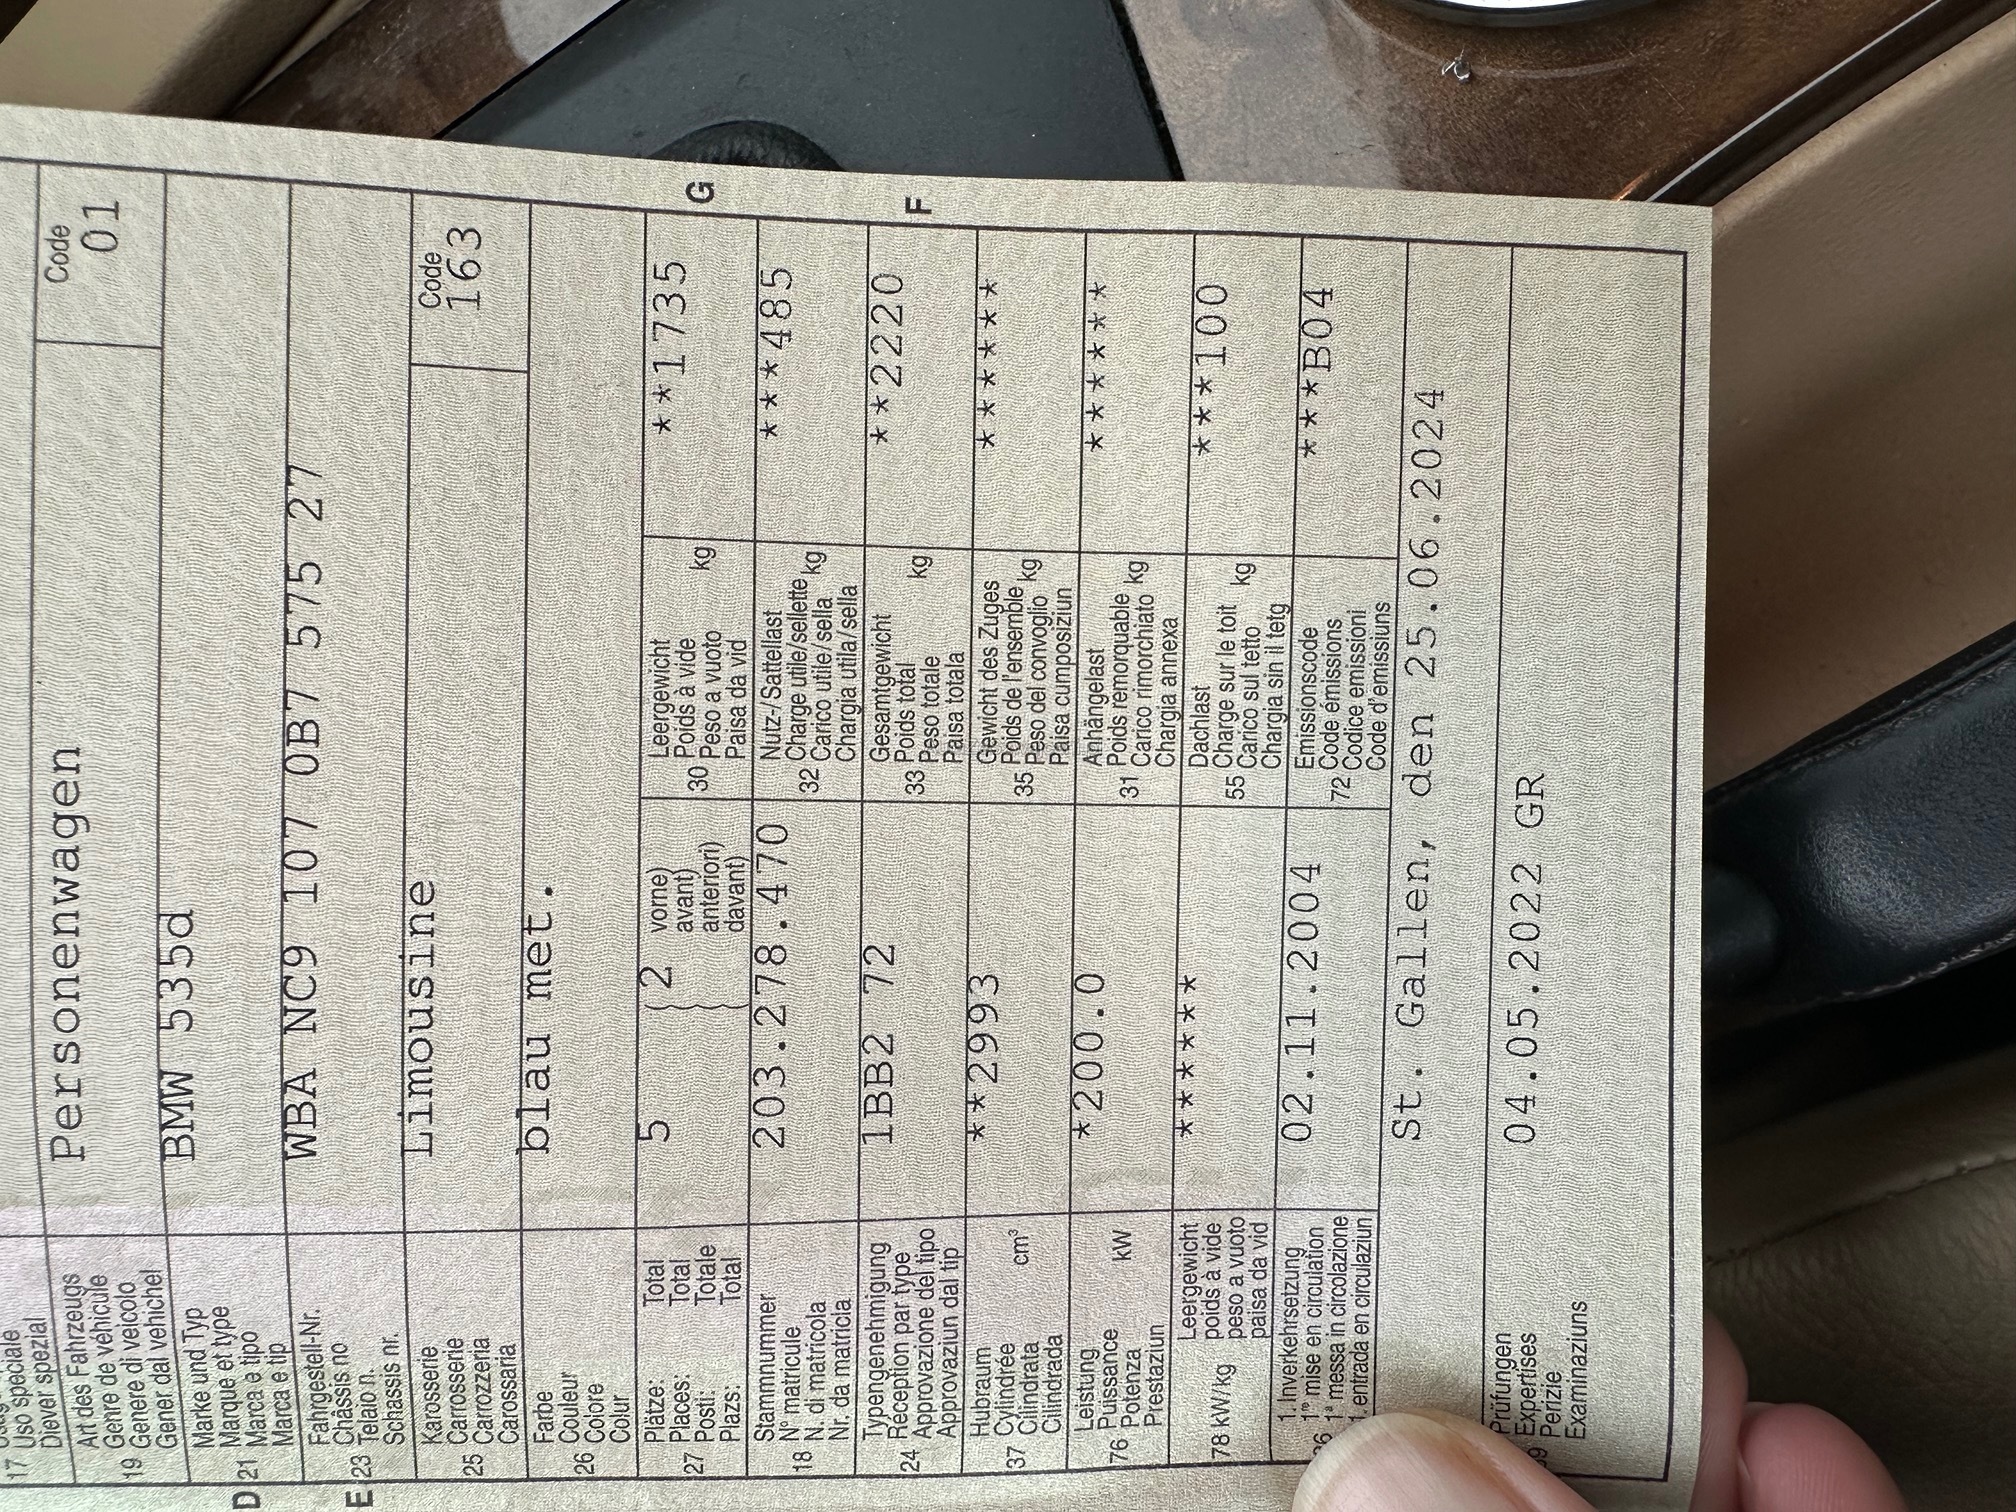 17 Uso speciale
Diever spezial
Art des Fahrzeugs
Genre de véhicule
19 Genere di veicolo
Gener dal vehichel
Personenwagen
Code
01
Marke und Typ
Marque et type
D 21 Marca e tipo
Marca e tip
BMW 535d
Fahrgestell-Nr.
Châssis no
E 23 Telaio n.
Schassis nr.
WBA NC9 107 0B7 575 27
Karosserie
Carrosserie
25 Carrozzeria
Carossaria
Limousine
Code
163
Farbe
Couleur
26 Colore
Colur
blau met.
Plätze: Total
Places: Total
27 Posti: Totale
Plazs: Total
5 { 2
vorne)
avant)
anteriori)
davant)
Leergewicht
Poids à vide
30 Peso a vuoto kg
Paisa da vid
**1735
G
Stammnummer
N° matricule
18 N. di matricola
Nr. da matricla
203.278.470
Nutz-/Sattellast
Charge utile/sellette
32 Carico utile/sella kg
Chargia utila/sella
***485
Typengenehmigung
Réception par type
24 Approvazione del tipo
Approvaziun dal tip
1BB2 72
Gesamtgewicht
Poids total
33 Peso totale kg
Paisa totala
**2220
F
Hubraum
Cylindrée cm³
37 Cilindrata
Cilindrada
**2993
Gewicht des Zuges
Poids de l'ensemble
35 Peso del convoglio kg
Paisa cumposiziun
*******
Leistung
Puissance kW
76 Potenza
Prestaziun
*200.0
Anhängelast
Poids remorquable
31 Carico rimorchiato kg
Chargia annexa
*******
Leergewicht
poids à vide
78 kW/kg peso a vuoto
paisa da vid
******
Dachlast
Charge sur le toit
55 Carico sul tetto kg
Chargia sin il tetg
***100
1. Inverkehrsetzung
1re mise en circulation
36 1a messa in circolazione
1. entrada en circulaziun
02.11.2004
Emissionscode
Code émissions
72 Codice emissioni
Code d'emissiuns
***B04
St. Gallen, den 25.06.2024
Prüfungen
39 Expertises
Perizie
Examinaziuns
04.05.2022 GR